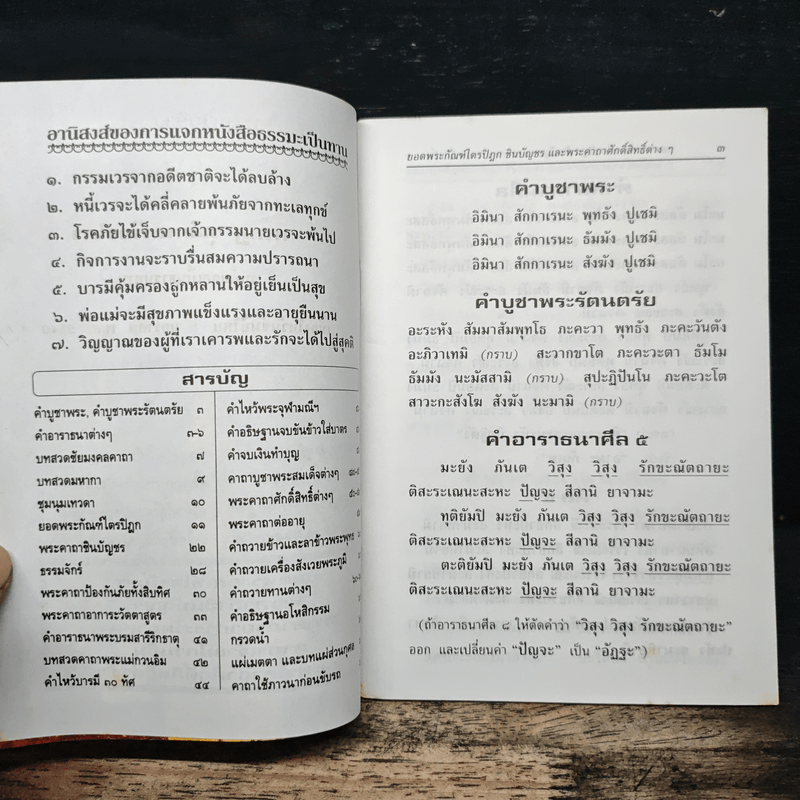 อานิสงส์ของการแจกหนังสือธรรมะเป็นทาน
๑. กรรมเวรจากอดีตชาติจะได้ลบล้าง
๒. หนี้เวรจะได้คลี่คลายพ้นภัยจากทะเลทุกข์
๓. โรคภัยไข้เจ็บจากเจ้ากรรมนายเวรจะพ้นไป
๔. กิจการงานจะราบรื่นสมความปรารถนา
๕. บารมีคุ้มครองลูกหลานให้อยู่เย็นเป็นสุข
๖. พ่อแม่จะมีสุขภาพแข็งแรงและอายุยืนนาน
๗. วิญญาณของผู้ที่เราเคารพและรักจะได้ไปสู่สุคติ
สารบัญ
คำบูชาพระ, คำบูชาพระรัตนตรัย ๓
คำอาราธนาต่างๆ ๓-๖
บทสวดชัยมงคลคาถา ๗
บทสวดมหากา ๙
ชุมนุมเทวดา ๑๐
ยอดพระกัณฑ์ไตรปิฎก ๑๑
พระคาถาชินบัญชร ๒๒
ธรรมจักร์ ๒๘
พระคาถาป้องกันภัยทั้งสิบทิศ ๓๐
พระคาถาอาการะวัตตาสูตร ๓๓
คำอาราธนาพระบรมสารีริกธาตุ ๔๑
บทสวดคาถาพระแม่กวนอิม ๔๒
คำไหว้บารมี ๓๐ ทัศ ๔๔
คำไหว้พระจุฬามณีฯ
คำอธิษฐานจบขันข้าวใส่บาตร
คำจบเงินทำบุญ
คาถาบูชาพระสมเด็จต่างๆ
พระคาถาศักดิ์สิทธิ์ต่างๆ
พระคาถาต่ออายุ
คำถวายข้าวและลาข้าวพระพุทธ
คำถวายเครื่องสังเวยพระภูมิ
คำถวายทานต่างๆ
คำอธิษฐานอโหสิกรรม
กรวดน้ำ
แผ่เมตตา และบทแผ่ส่วนกุศล
คาถาใช้ภาวนาก่อนขับรถ
ยอดพระกัณฑ์ไตรปิฎก ชินบัญชร และพระคาถาศักดิ์สิทธิ์ต่าง ๆ ๓
คำบูชาพระ
อิมินา สักกาเรนะ พุทธัง ปูเชมิ
อิมินา สักกาเรนะ ธัมมัง ปูเชมิ
อิมินา สักกาเรนะ สังฆัง ปูเชมิ
คำบูชาพระรัตนตรัย
อะระหัง สัมมาสัมพุทโธ ภะคะวา พุทธัง ภะคะวันตัง
อะภิวาเทมิ (กราบ) สะวากขาโต ภะคะวะตา ธัมโม
ธัมมัง นะมัสสามิ (กราบ) สุปะฏิปันโน ภะคะวะโต
สาวะกะสังโฆ สังฆัง นะมามิ (กราบ)
คำอาราธนาศีล ๕
มะยัง ภันเต วิสุง วิสุง รักขะณัตถายะ
ติสะระเณนะสะหะ ปัญจะ สีลานิ ยาจามะ
ทุติยัมปิ มะยัง ภันเต วิสุง วิสุง รักขะณัตถายะ
ติสะระเณนะสะหะ ปัญจะ สีลานิ ยาจามะ
ตะติยัมปิ มะยัง ภันเต วิสุง วิสุง รักขะณัตถายะ
ติสะระเณนะสะหะ ปัญจะ สีลานิ ยาจามะ
(ถ้าอาราธนาศีล ๘ ให้ตัดคำว่า "วิสุง วิสุง รักขะณัตถายะ"
ออก และเปลี่ยนคำ "ปัญจะ" เป็น "อัฏฐะ")